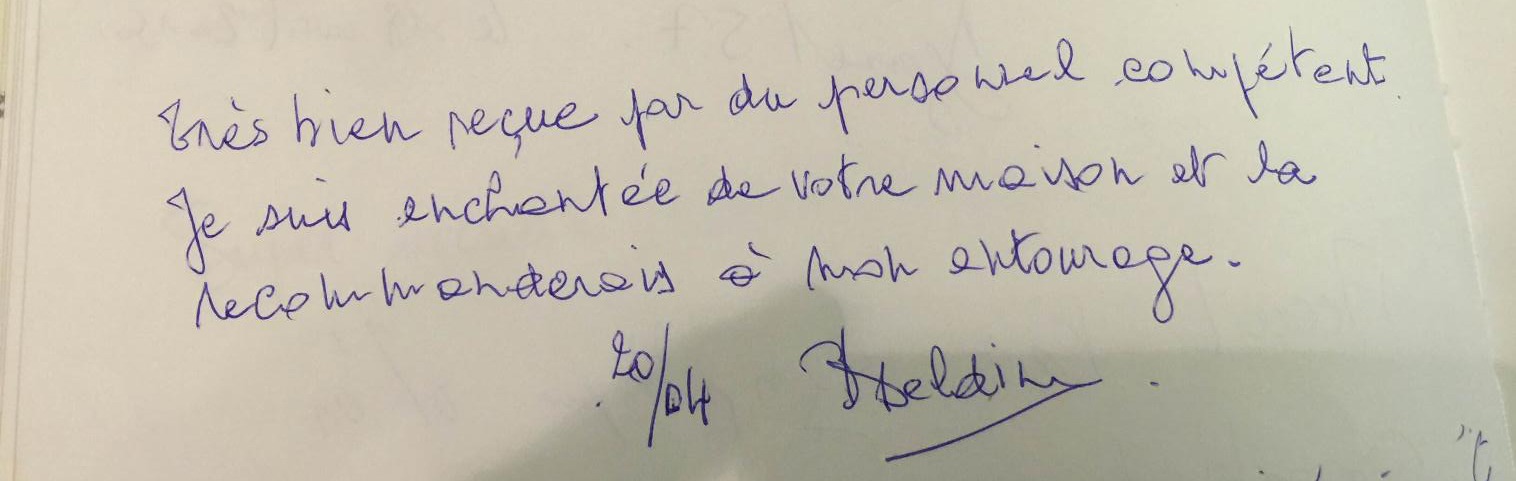 très bien reçue par du personnel compétent.
Je suis enchantée de votre maison et la
recommanderais à mon entourage.
20/04